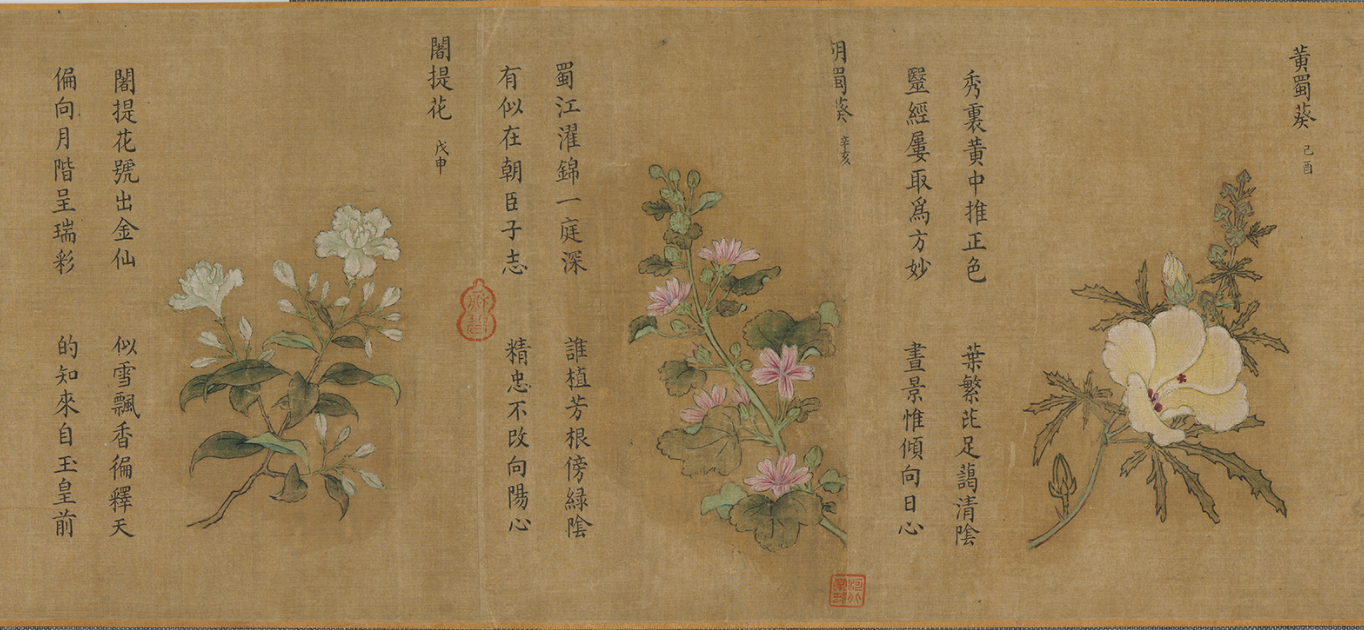 黃蜀葵 己酉
秀裏黃中推正色 葉繁茈足藹清陰
毉經屢取爲方妙 晝景惟傾向日心
胡蜀葵 辛亥
蜀江濯錦一庭深 誰植芳根傍緑陰
有似在朝臣子志 精忠不改向陽心
闍提花 戊申
闍提花號出金仙 似雪飄香徧釋天
偏向月階呈瑞彩 的知來自玉皇前